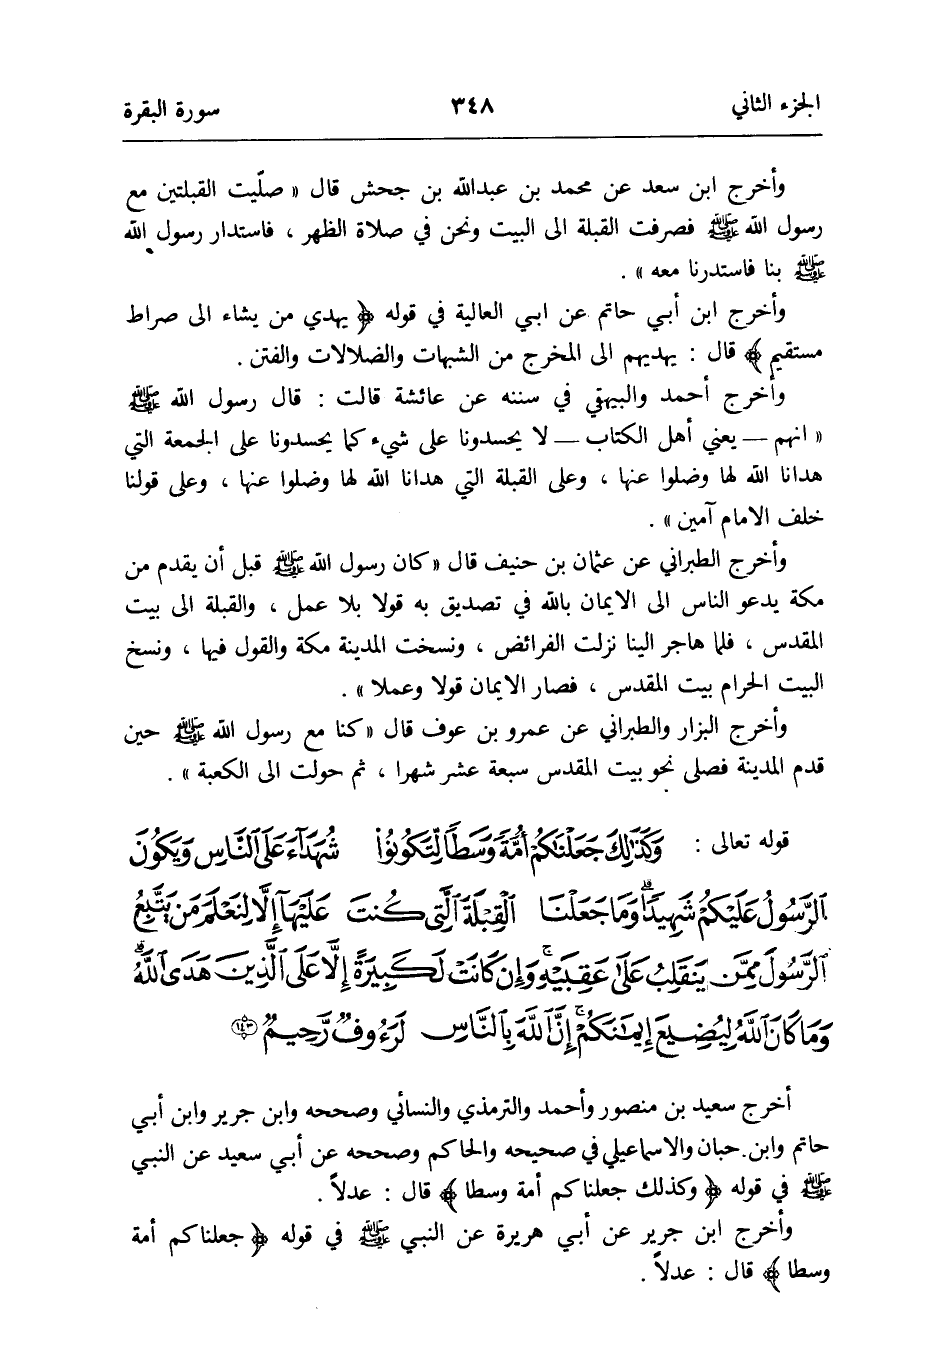 الجزء الثاني ٣٤٨ سورة البقرة
وأخرج ابن سعد عن محمد بن عبدالله بن جحش قال « صلّيت القبلتين مع
رسول الله ﷺ فصرفت القبلة الى البيت ونحن في صلاة الظهر ، فاستدار رسول الله
ﷺ بنا فاستدرنا معه » .
وأخرج ابن أبي حاتم عن ابي العالية في قوله ﴿ يهدي من يشاء الى صراط
مستقيم ﴾ قال : يهديهم الى المخرج من الشبهات والضلالات والفتن .
وأخرج أحمد والبيهقي في سننه عن عائشة قالت : قال رسول الله ﷺ
« انهم — يعني أهل الكتاب — لا يحسدونا على شيء كما يحسدونا على الجمعة التي
هدانا الله لها وضلوا عنها ، وعلى القبلة التي هدانا الله لها وضلوا عنها ، وعلى قولنا
خلف الامام آمين » .
وأخرج الطبراني عن عثمان بن حنيف قال « كان رسول الله ﷺ قبل أن يقدم من
مكة يدعو الناس الى الايمان بالله في تصديق به قولا بلا عمل ، والقبلة الى بيت
المقدس ، فلما هاجر الينا نزلت الفرائض ، ونسخت المدينة مكة والقول فيها ، ونسخ
البيت الحرام بيت المقدس ، فصار الايمان قولا وعملا » .
وأخرج البزار والطبراني عن عمرو بن عوف قال « كنا مع رسول الله ﷺ حين
قدم المدينة فصلى نحو بيت المقدس سبعة عشر شهرا ، ثم حولت الى الكعبة » .
قوله تعالى : وَكَذَٰلِكَ جَعَلْنَاكُمْ أُمَّةً وَسَطًا لِّتَكُونُوا۟ شُهَدَآءَ عَلَى ٱلنَّاسِ وَيَكُونَ
ٱلرَّسُولُ عَلَيْكُمْ شَهِيدًاۗ وَمَا جَعَلْنَا ٱلْقِبْلَةَ ٱلَّتِى كُنتَ عَلَيْهَآ إِلَّا لِنَعْلَمَ مَن يَتَّبِعُ
ٱلرَّسُولَ مِمَّن يَنقَلِبُ عَلَىٰ عَقِبَيْهِۚ وَإِن كَانَتْ لَكَبِيرَةً إِلَّا عَلَى ٱلَّذِينَ هَدَى ٱللَّهُۗ
وَمَا كَانَ ٱللَّهُ لِيُضِيعَ إِيمَٰنَكُمْۚ إِنَّ ٱللَّهَ بِٱلنَّاسِ لَرَءُوفٌ رَّحِيمٌ ۝١٤٣
أخرج سعيد بن منصور وأحمد والترمذي والنسائي وصححه وابن جرير وابن أبي
حاتم وابن حبان والاسماعيلي في صحيحه والحاكم وصححه عن أبي سعيد عن النبي
ﷺ في قوله ﴿ وكذلك جعلناكم أمة وسطا ﴾ قال : عدلاً .
وأخرج ابن جرير عن أبي هريرة عن النبي ﷺ في قوله ﴿ جعلناكم أمة
وسطا ﴾ قال : عدلاً .